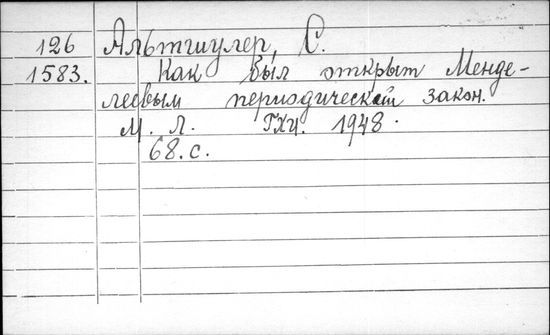 126 Альтшулер, С.
1583. Как был открыт Менде-
леевым периодический закон.
М. Л. ГХИ. 1948.
68. с.